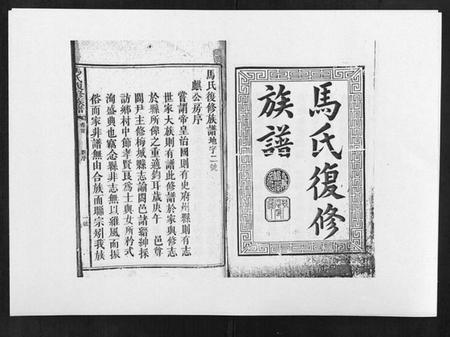 馬氏復修
族譜
馬氏復修族譜地字二號
公房序
嘗謂帝皇治國則有史府州縣則有志
世家大族則有譜此修譜於家與修志
於縣所俾之重適鈞耳歲庚午 邑尊
闕尹主修梅城縣志諭闔邑諸
訪鄉村中節孝賢良為士與女所矜式
洵盛典也竊念縣非志無以維風而振
俗而家非譜無由合族而聯宗矧我族